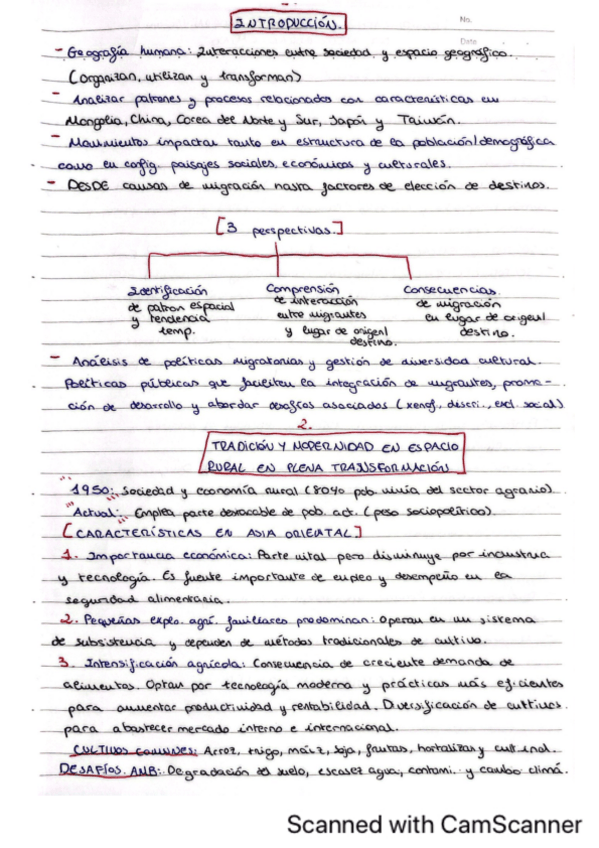 INTRODUCCIÓN.
No.
Date
- Geografía humana: Interacciones entre sociedad y espacio geográfico.
(organizan, utilizan y transforman)
- Analizar patrones y procesos relacionados con características en
Mongolia, China, Corea del Norte y Sur, Japón y Taiwán.
- Movimientos impactan tanto en estructura de la población/demográfica
como en config. paisajes sociales, económicos y culturales.
- DESDE causas de migración hasta factores de elección de destinos.
[3 perspectivas.]
Identificación
de patron espacial
y tendencia
temp.
Comprensión
de interacción
entre migrantes
y lugar de origen/
destino.
Consecuencias
de migración
en lugar de origen/
destino.
- Análisis de políticas migratorias y gestión de diversidad cultural.
Políticas públicas que faciliten la integración de migrantes, promo-
ción de desarrollo y abordar desafíos asociados (xenof., discri.., excl. social)
2.
TRADICIÓN Y MODERNIDAD EN ESPACIO
RURAL EN PLENA TRANSFORMACIÓN
1950: Sociedad y economía rural (80% pob. vivía del sector agrario).
Actual: Emplea parte destacable de pob. act. (peso sociopolítico).
[CARACTERÍSTICAS EN ASIA ORIENTAL]
1. Importancia económica: Parte vital pero disminuye por industria
y tecnología. Es fuente importante de empleo y desempeño en la
seguridad alimentaria.
2. Pequeñas explo. agrí. familiares predominan: Operan en un sistema
de subsistencia y dependen de métodos tradicionales de cultivo.
3. Intensificación agrícola: Consecuencia de creciente demanda de
alimentos. Optan por tecnología moderna y prácticas más eficientes
para aumentar productividad y rentabilidad. Diversificación de cultivos
para abastecer mercado interno e internacional.
CULTIVOS COMUNES: Arroz, trigo, maíz, soja, frutas, hortalizas y cult. ind.
DESAFÍOS. AMB: Degradación del suelo, escasez agua, contami. y cambio climá.
Scanned with CamScanner